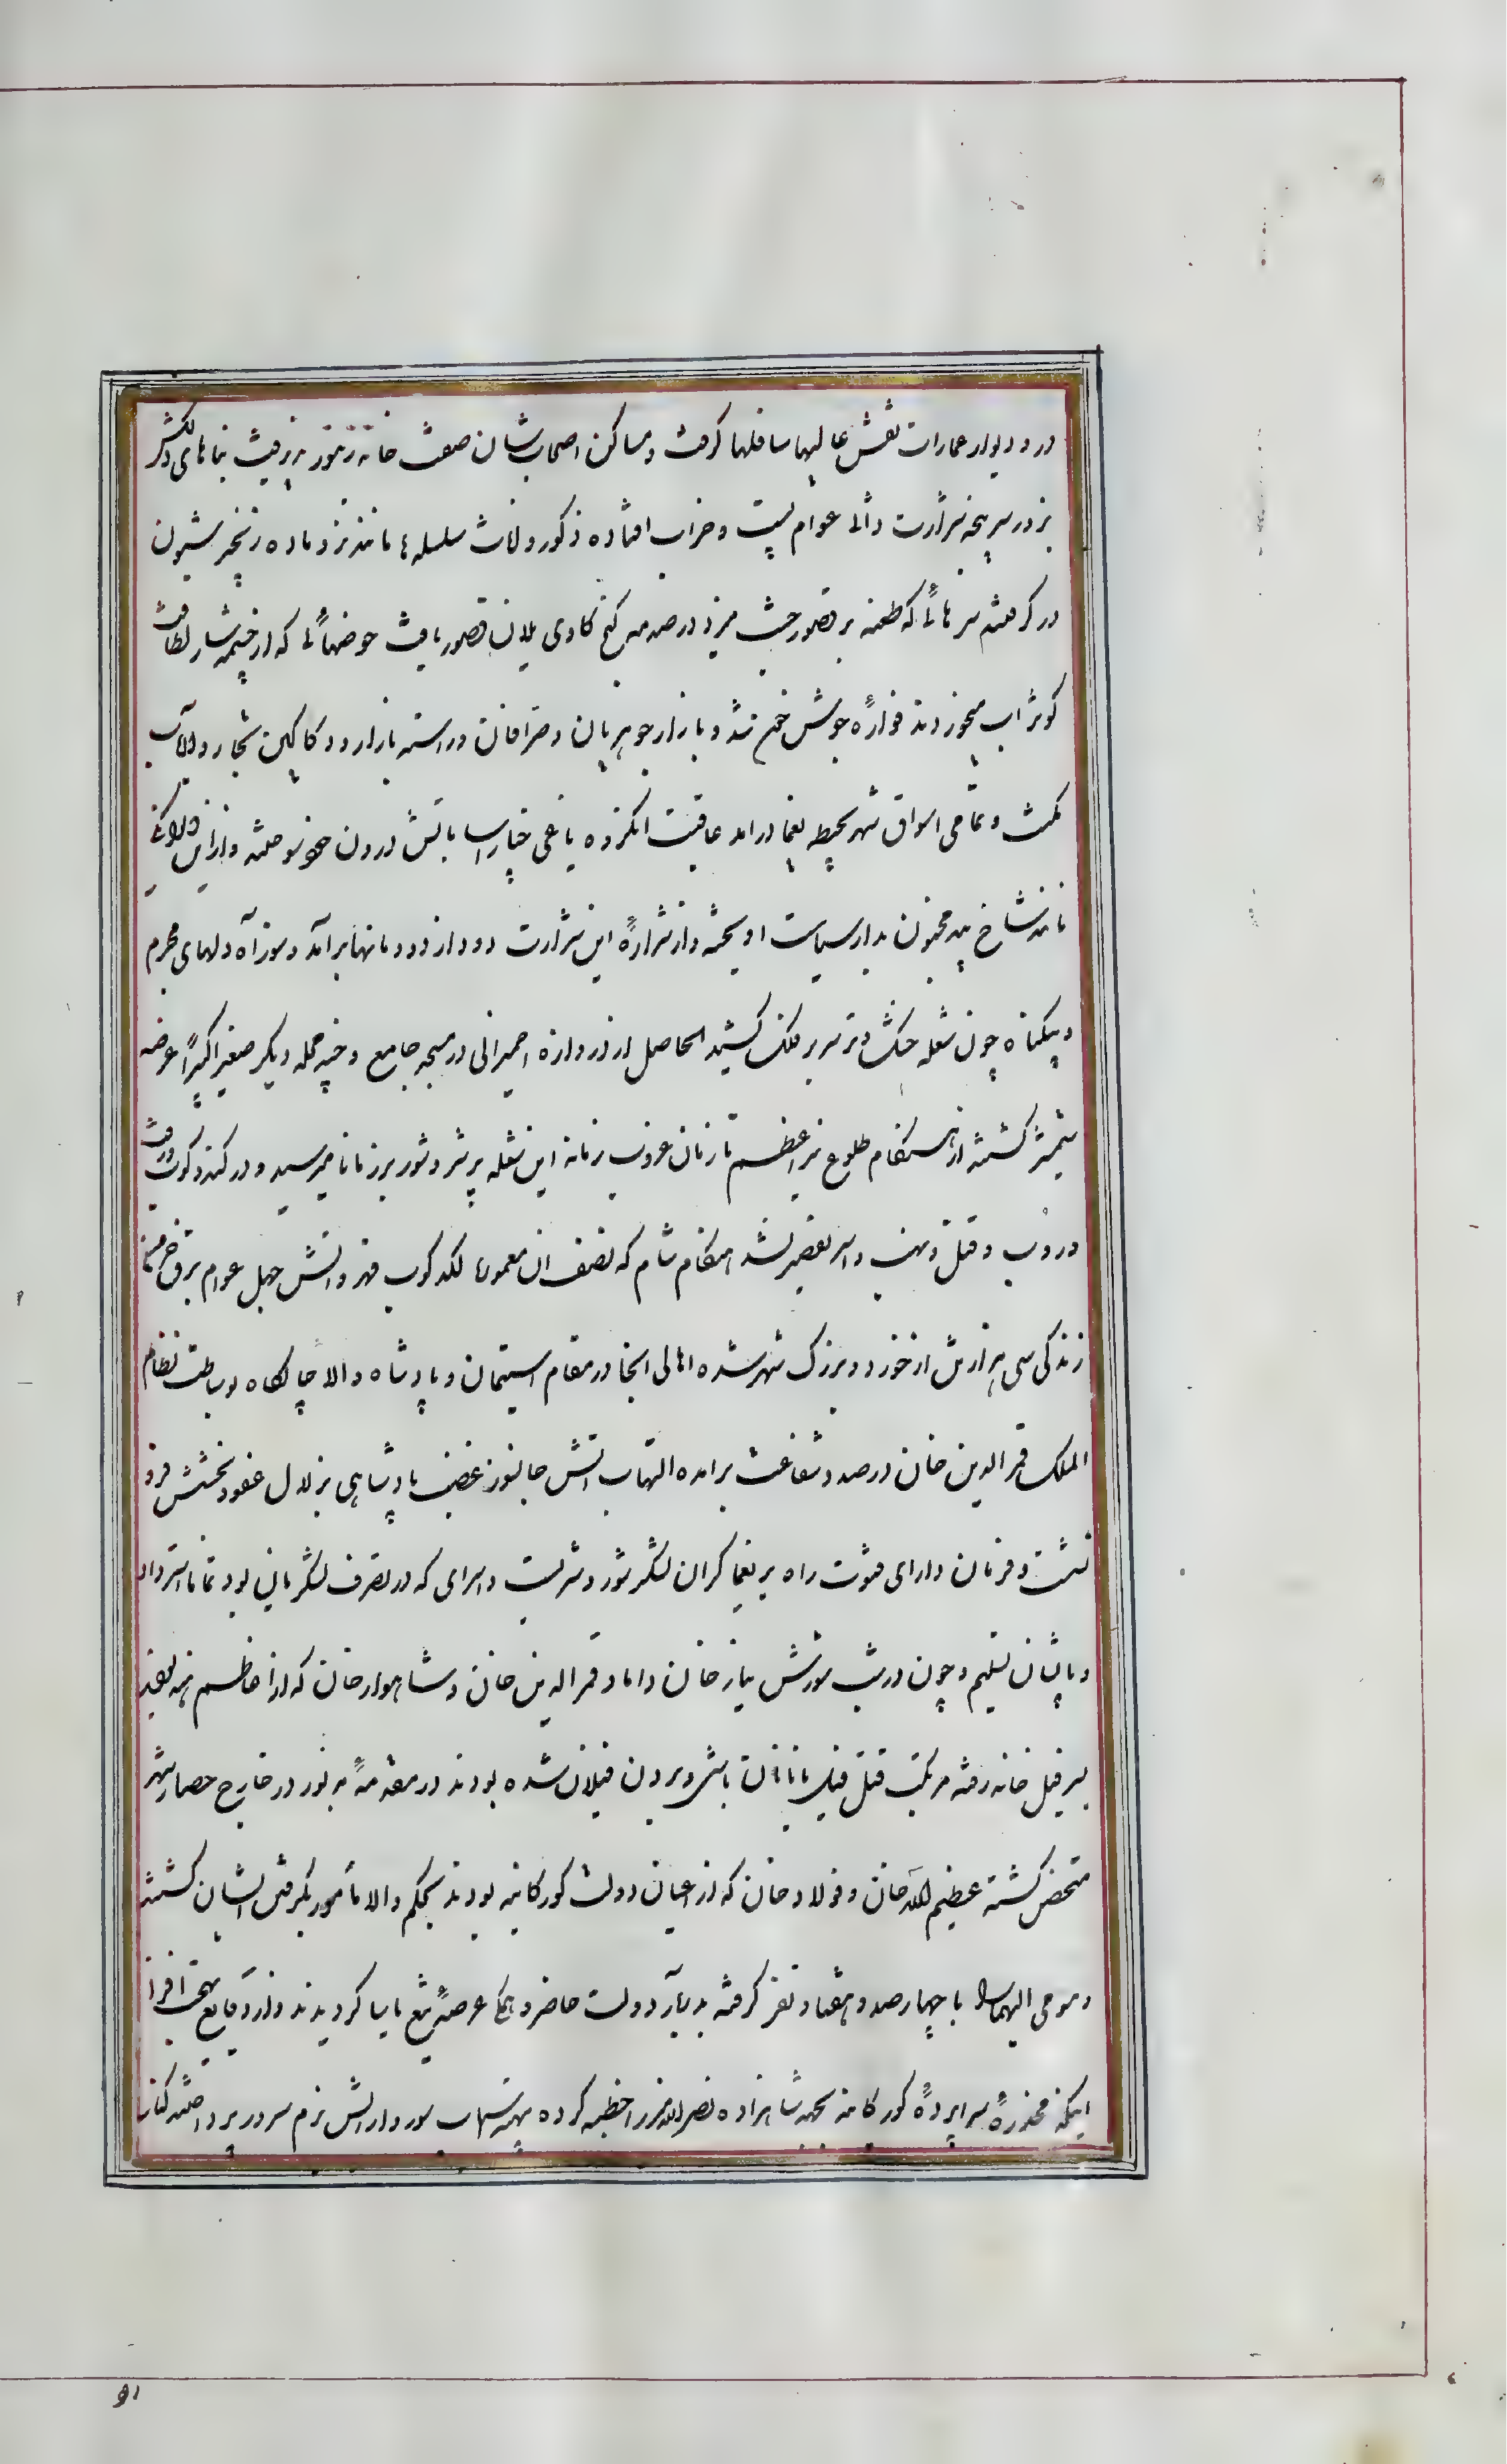 در و دیوار عمارات نقش عالیها سافلها گرفت و مساکن اصحاب شان صفت خانه زنبور پذیرفت بناهای دلکش
نیز در سرپنجه شرارت و الی عوام پست و خراب افتاده ذکور و اناث سلسله ها مانند نر و ماده زنجیر شیون
در گرفتند سرهائی که طعنه بر قصور جنت میزد در صدمه کنج کاوی یلان قصور یافت حوضهائی که از چشمه سار لطافت
کوثر اب میخوردند فوارهٔ جوش خون شد و بازار جوهریان و صرافان و راسته بازار و دکاکین تجار و الاب
مکنت و تمامی اسواق شهر بحیطه یغما درامد عاقبت انگروه یاغی خیار اسا باتش درون خود سوخته و از این
مانند شاخ بید مجنون بدار سیاست اویخته و از شرارهٔ این شرارت دود از دودمانها برآمد و سوز آه دلهای مجرم
و بیگناه چون شعله خشک و تر سر بر فلک کشید الحاصل از دروازه اجمیری الی در مسجد جامع و چند محله دیگر صغیرا کبیرا عرضه
شمشیر گشته از هنگام طلوع نیر اعظم تا زمان غروب زبانه این شعله پر شر و شور بر زبانا میرسید و در کند و کوب و رفت
و روب و قتل و نهب و اسر تقصیر نشد هنگام شام که نصف ان معموره لگدکوب قهر و اتش جهل عوام برق خرمن
زندگی سی هزار تن از خورد و بزرگ شهر شده اهالی انجا در مقام استیمان و پادشاه والا جایگاه بوساطت نظام
الملک و قمرالدین خان در صدد شفاعت برامده التهاب اتش جانسوز غضب پادشاهی بزلال عفو و بخشش فرو
نشست و فرمان دارای فتوت راه بر یغماگران لشکر شور و شر بست و اسرای که در تصرف لشکریان بود تماما استرداد
و باایشان تسلیم و چون در شب شورش نیاز خان داماد قمرالدین خان و شاهسوار خان که از اعاظم هند بودند
بسر فیل خانه رفته مرتکب قتل فیلبانان باشی و بردن فیلان شده بودند در مقدمهٔ مزبور در خارج حصار شهر
متحصن گشته عظیم الله خان و فولاد خان که از اعیان دولت گورکانیه بودند بحکم والا مأمور بگرفتن ایشان گشتند
و مومی الیهما را با چهارصد و هفتاد نفر گرفته بدربار دولت حاضر و همگی عرصهٔ تیغ یاسا گردیدند و از وقایع بهجت افزا
اینکه مخدرهٔ سراپردهٔ گورکانیه بجهة شاهزاده نصرالله میرزا خطبه کرده بتهیه اسباب سور و ارایش بزم سرور پرداختند کنار
۹۱